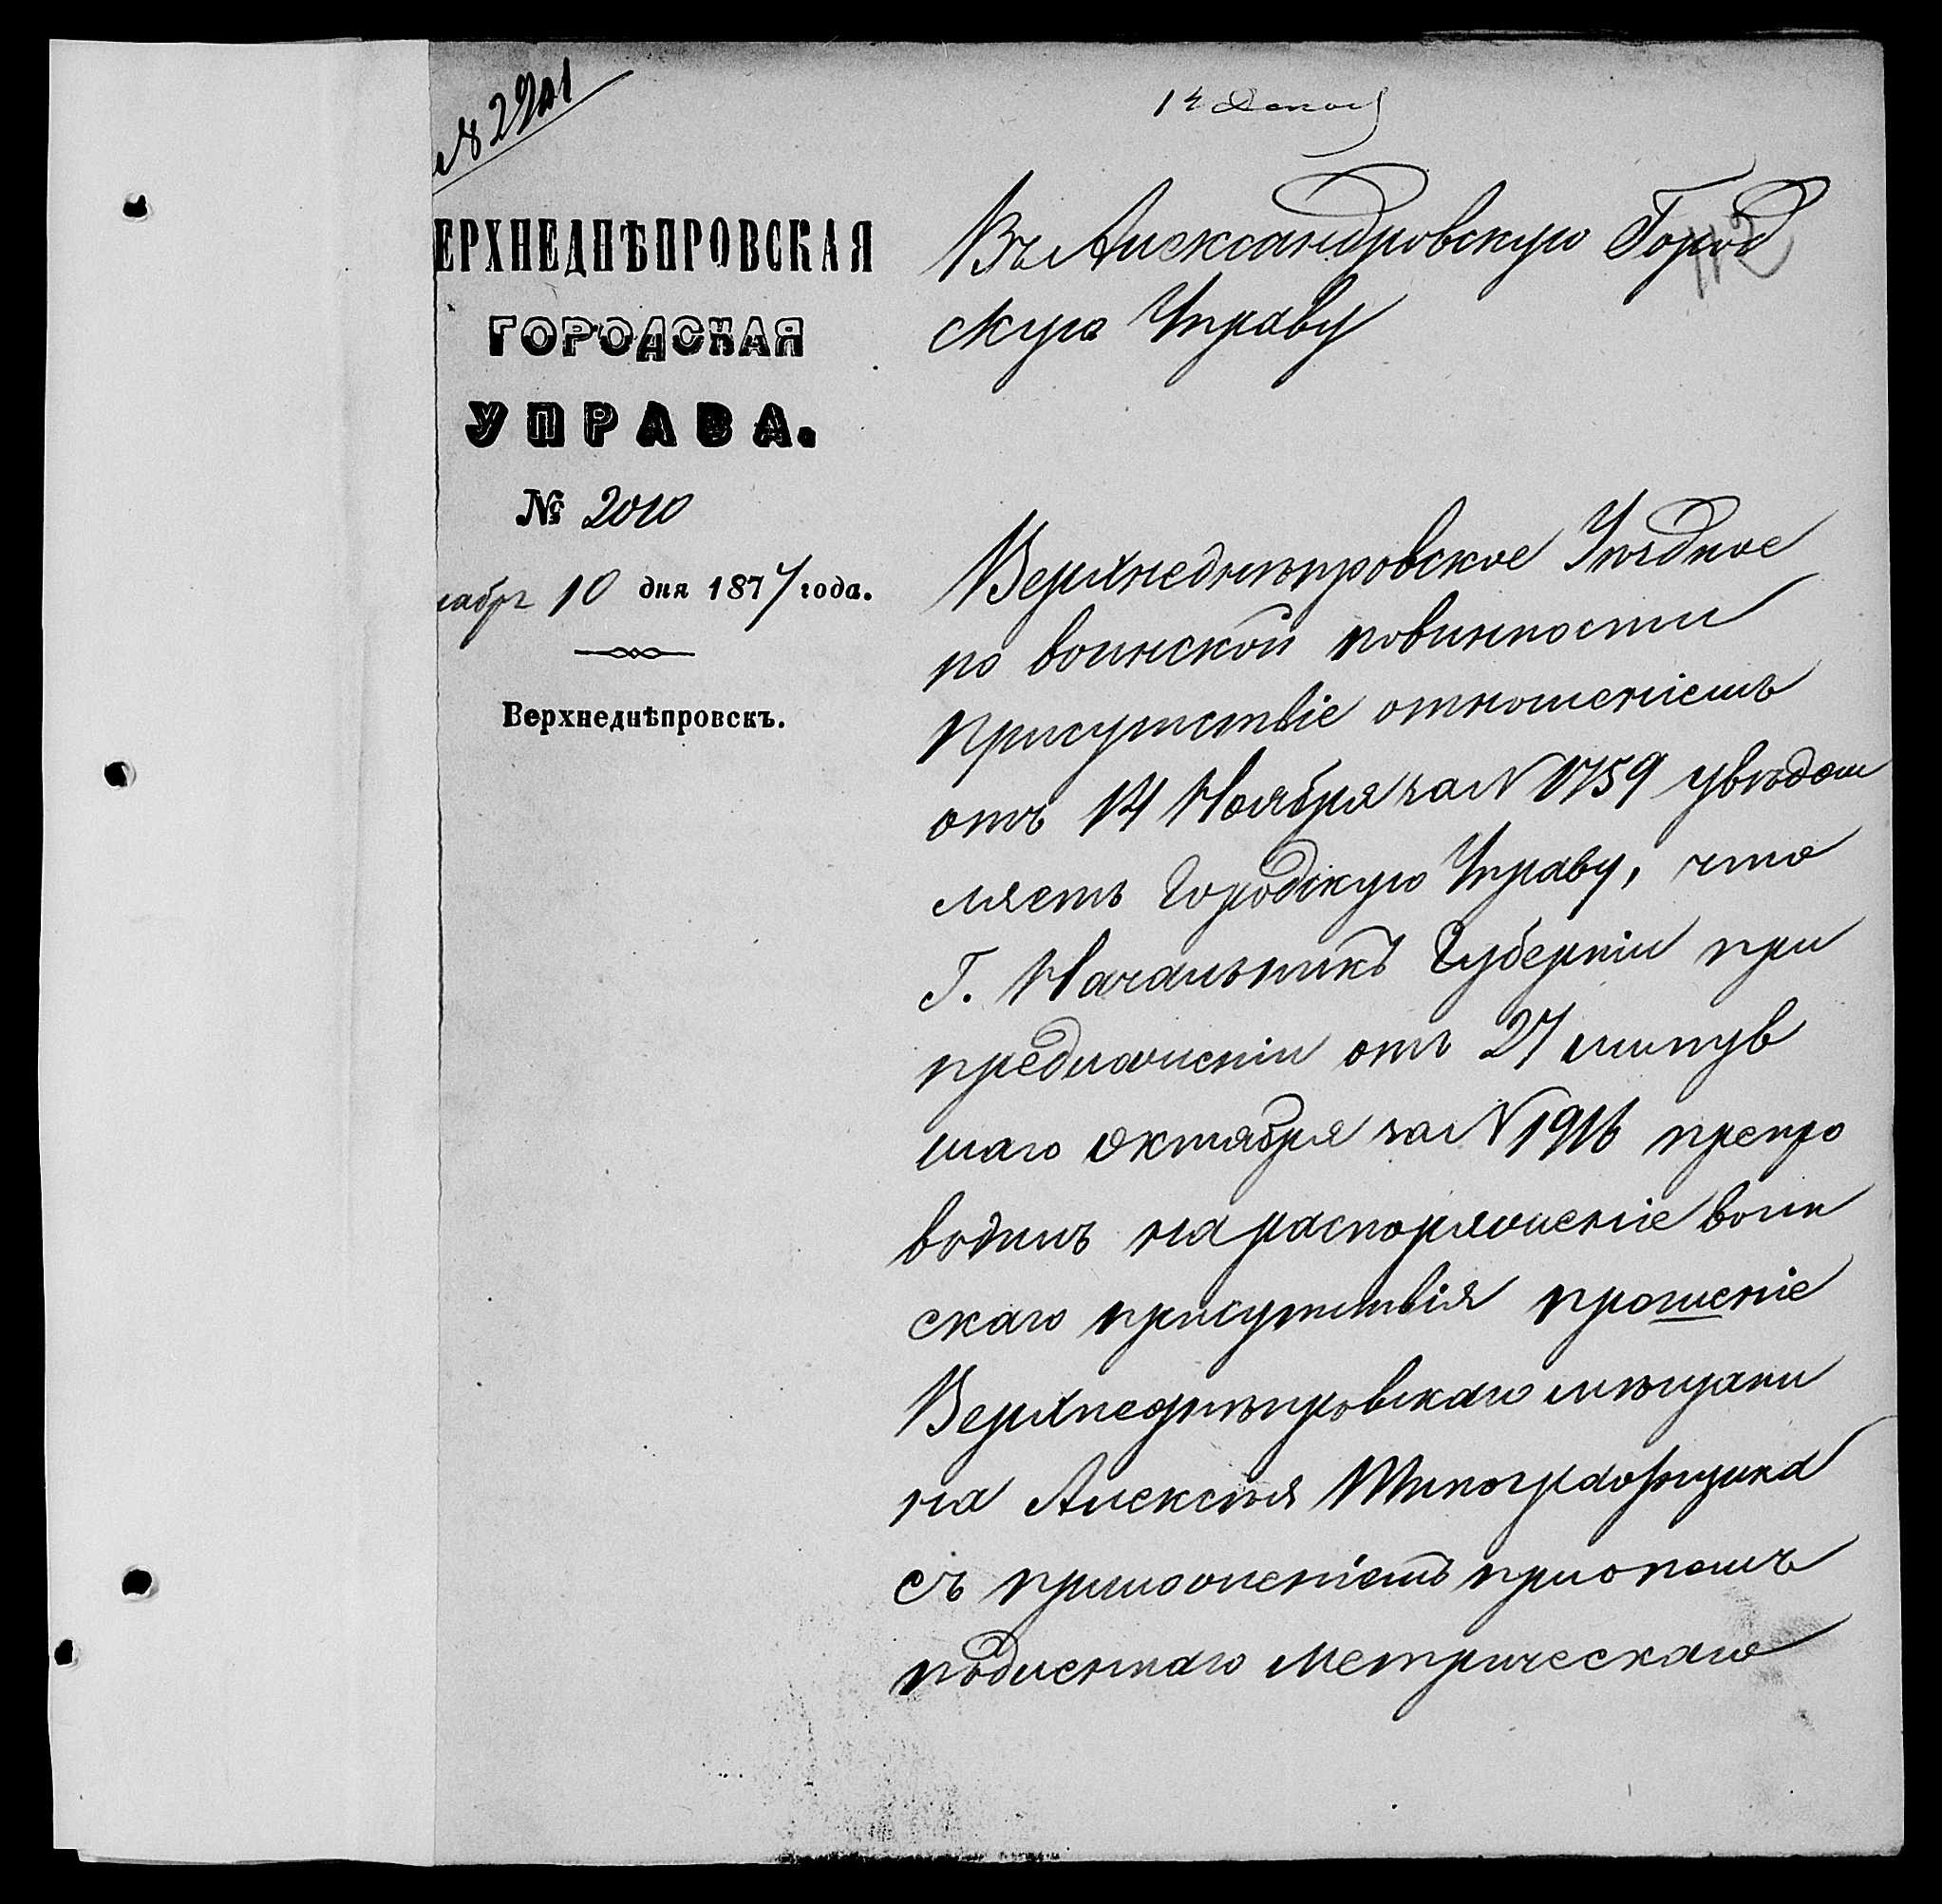 № 2901
14 Декаб
112
ЕРХНЕДНѢПРОВСКАЯ
ГОРОДСКАЯ
УПРАВА.
№ 2010
кабря 10 дня 1877 года.
Верхнеднѣпровскъ.
Въ Александровскую Город
скую Управу
Верхнеднѣпровское Уѣздное
по воинской повинности
присутствіе отношеніемъ
отъ 14 Ноября за № 1759 увѣдом
ляетъ Городскую Управу, что
Г. Начальникъ Губерніи при
предложеніи отъ 27 минув
шаго Октября за № 1916 препро
водилъ на распоряженіе воин
скаго присутствія прошеніе
Верхнеднѣпровскаго мѣщани
на Алексѣя Типографщика
съ приложеніемъ при ономъ
подлежнаго метрическаго